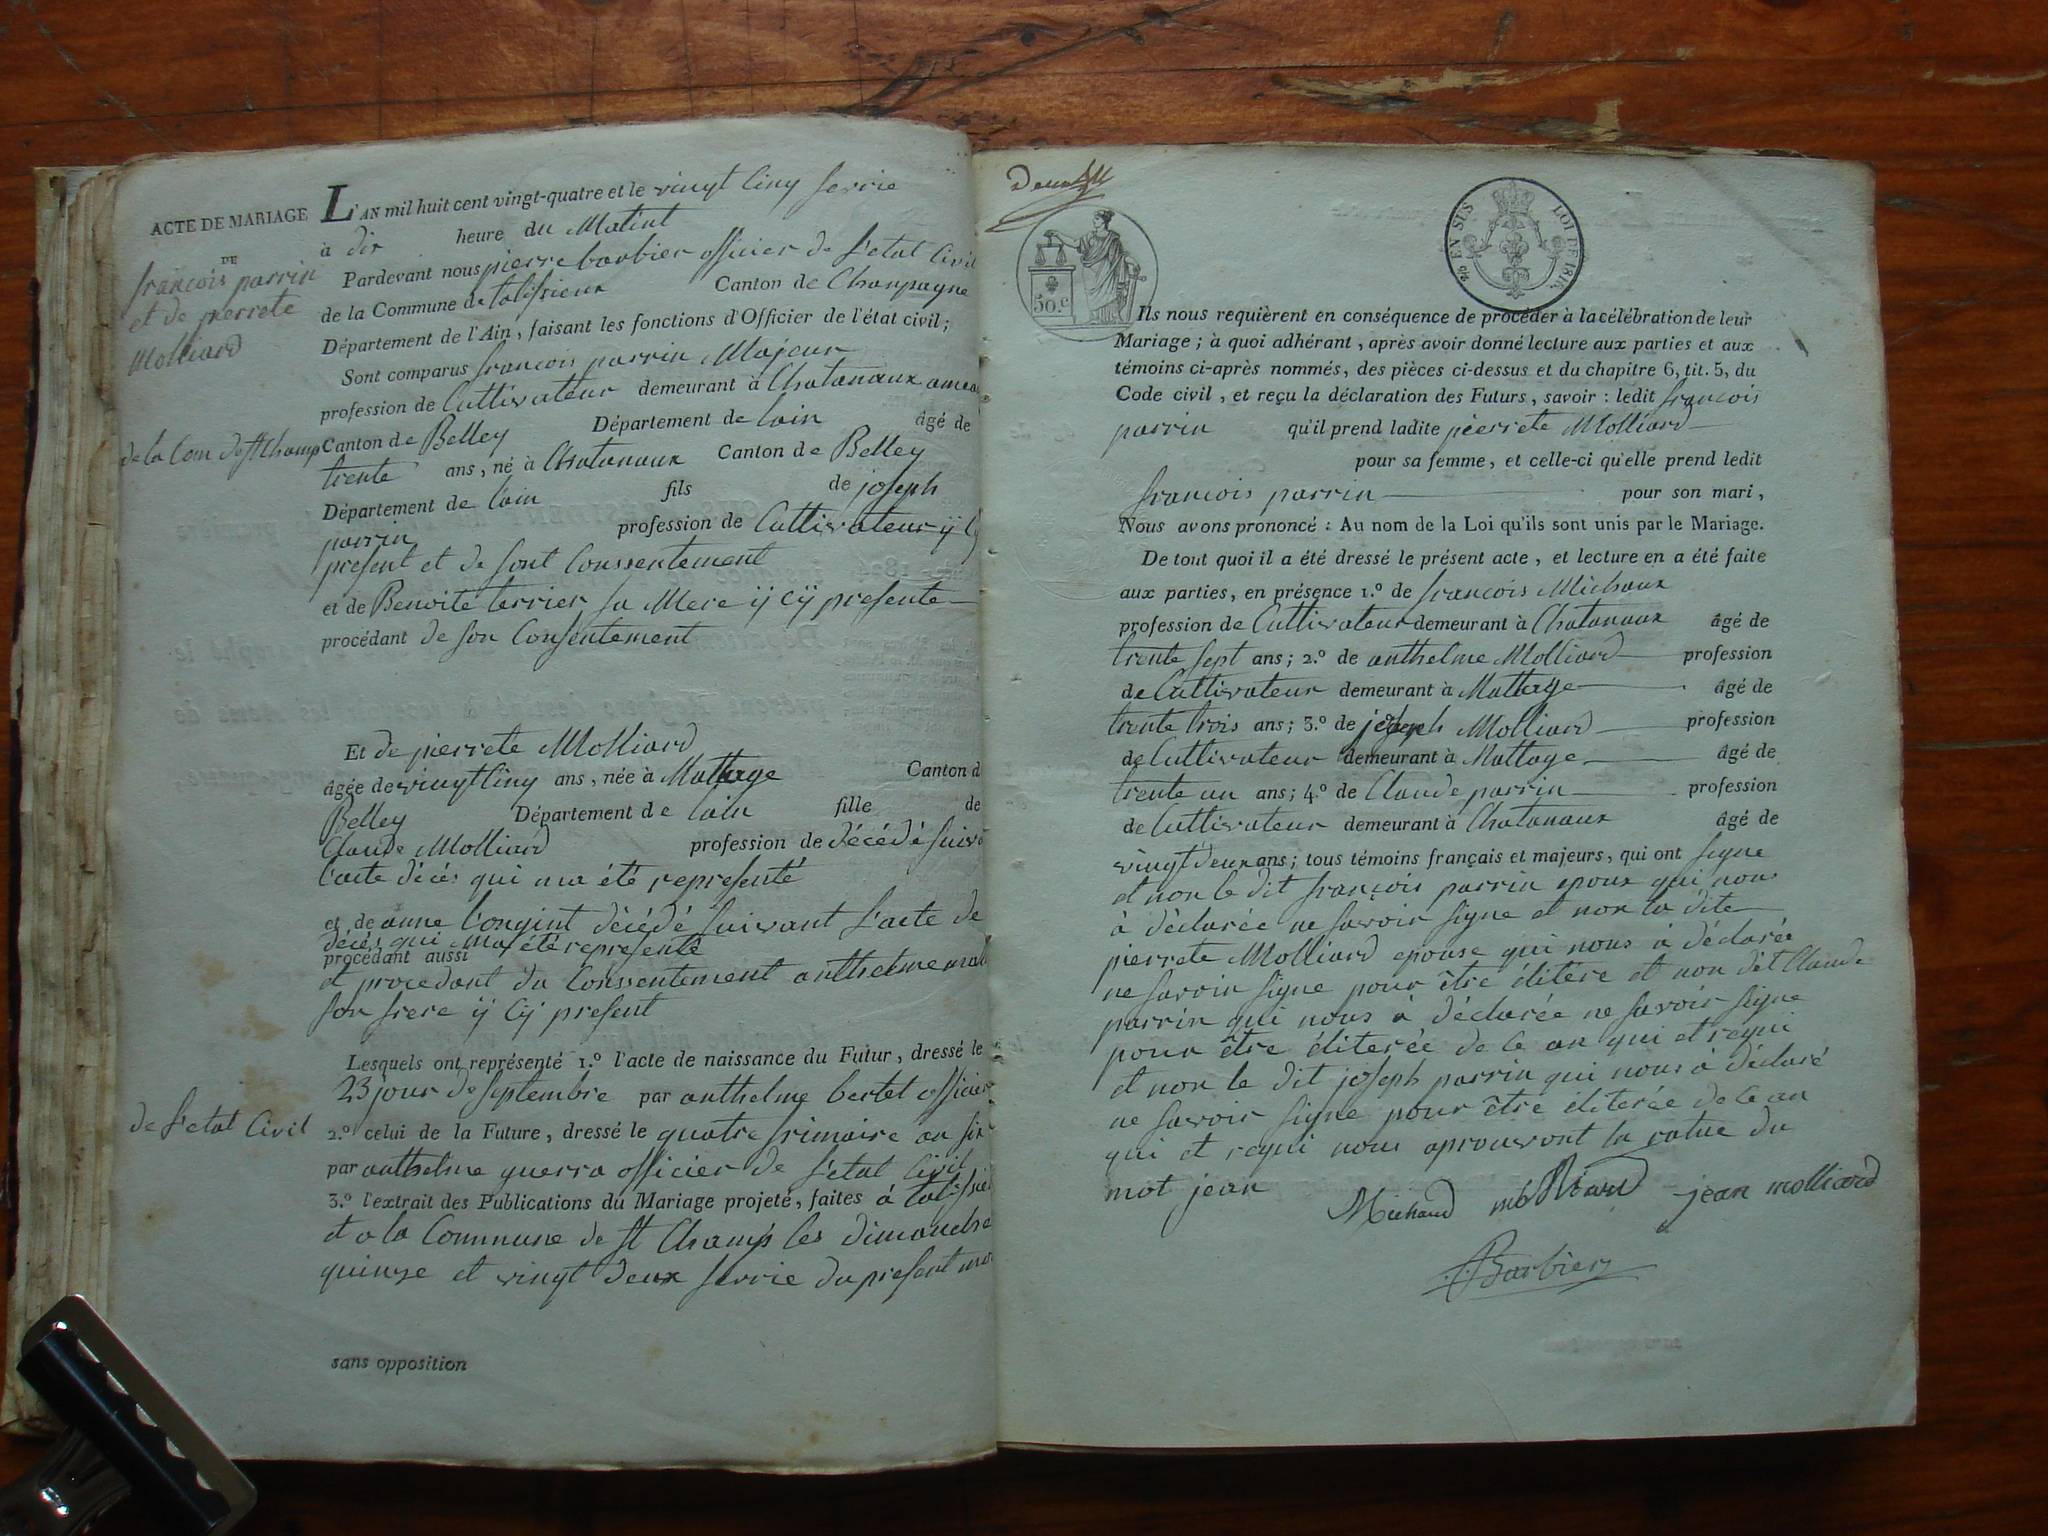 ACTE DE MARIAGE
DE
françois parrin
et de pierrete
Molliard
L'AN mil huit cent vingt-quatre et le vingt Cinq fevrie
à dix heure du Matint
Pardevant nous pierre barbier officier de l'etat Civil
de la Commune de talissieux Canton de Champagne
Département de l'Ain, faisant les fonctions d'Officier de l'état civil;
Sont comparus françois parrin Majeur
profession de Cultivateur demeurant à Chatonaux
de la Com de St Champ Canton de Belley Département de lain âgé de
trente ans, né à Chatonaux Canton de Belley
Département de lain fils de joseph
parrin profession de Cultivateur ÿ Cy
present et de sont Conssentement
et de Benoite terrier sa Mere ÿ cÿ presente
procédant de son Consentement
Et de pierrete Molliard
âgée de vingt Cinq ans, née à Mattage Canton d
Belley Département de lain fille de
Claude Molliard profession de décédé suiv
l'acte décés qui ma été representé
et de anne Longint décédé suivant l'acte de
décés qui ma été representé
procédant aussi
et procedant du Conssentement anthelme
son frere ÿ Cÿ present
Lesquels ont représenté 1.º l'acte de naissance du Futur, dressé le
23 jour de septembre par anthelme bertet officier
de l'etat Civil
2.º celui de la Future, dressé le quatre frimaire an six
par anthelme guerra officier de l'etat Civil
3.º l'extrait des Publications du Mariage projeté, faites à talissie
et a la Commune de St Champ les dimanche
quinze et vingt deux fevrie du present
sans opposition
50.c
EN SUS
LOI DE
Ils nous requièrent en conséquence de procéder à la célébration de leur
Mariage; à quoi adhérant, après avoir donné lecture aux parties et aux
témoins ci-après nommés, des pièces ci-dessus et du chapitre 6, tit. 5, du
Code civil, et reçu la déclaration des Futurs, savoir: ledit françois
parrin qu'il prend ladite pierrete Molliard
pour sa femme, et celle-ci qu'elle prend ledit
françois parrin pour son mari,
Nous avons prononcé: Au nom de la Loi qu'ils sont unis par le Mariage.
De tout quoi il a été dressé le présent acte, et lecture en a été faite
aux parties, en présence 1.º de françois Michaux
profession de Cultivateur demeurant à Chatonaux âgé de
trente sept ans; 2.º de anthelme Molliard profession
de Cultivateur demeurant à Mattage âgé de
trente trois ans; 3.º de joseph Molliard profession
de Cultivateur demeurant à Mattage âgé de
trente un ans; 4.º de Claude parrin profession
de Cultivateur demeurant à Chatonaux âgé de
vingt deux ans; tous témoins français et majeurs, qui ont signe
et non le dit françois parrin epoux qui nous
à déclarée ne savoir signe et non la dite
pierrete Molliard epouse qui nous à déclarée
ne savoir signe pour être élitére et non dit Claude
parrin qui nous à déclarée ne savoir signe
pour être éliterée de ce an qui et requi
et non le dit joseph parrin qui nous à déclaré
ne savoir signe pour être éliterée de ce an
qui et requi nous aprouvont la ratue du
mot jean
Michaud molliard jean molliard
Barbier